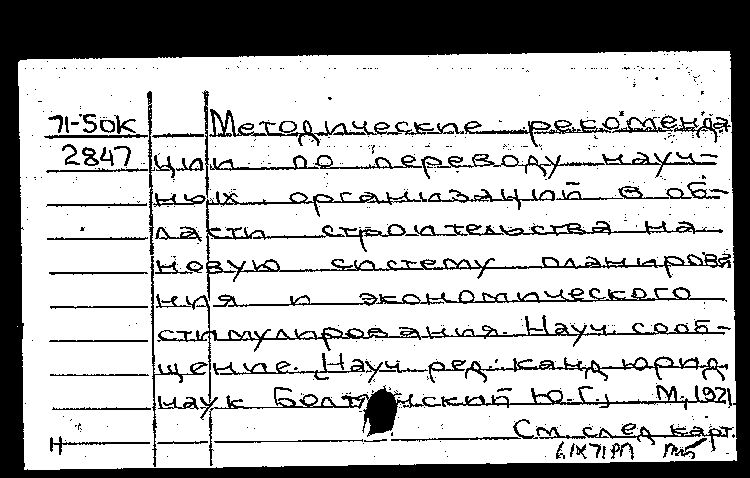 71-50К Методические рекоменда
2847 ции по переводу науч-
ных организаций в об-
ласти строительства на
новую систему планирова
ния и экономического
стимулирования. Науч. сооб-
щение. Науч. ред. канд. юрид.
наук Ю.Г., М, 1971
См. след карт.
Н